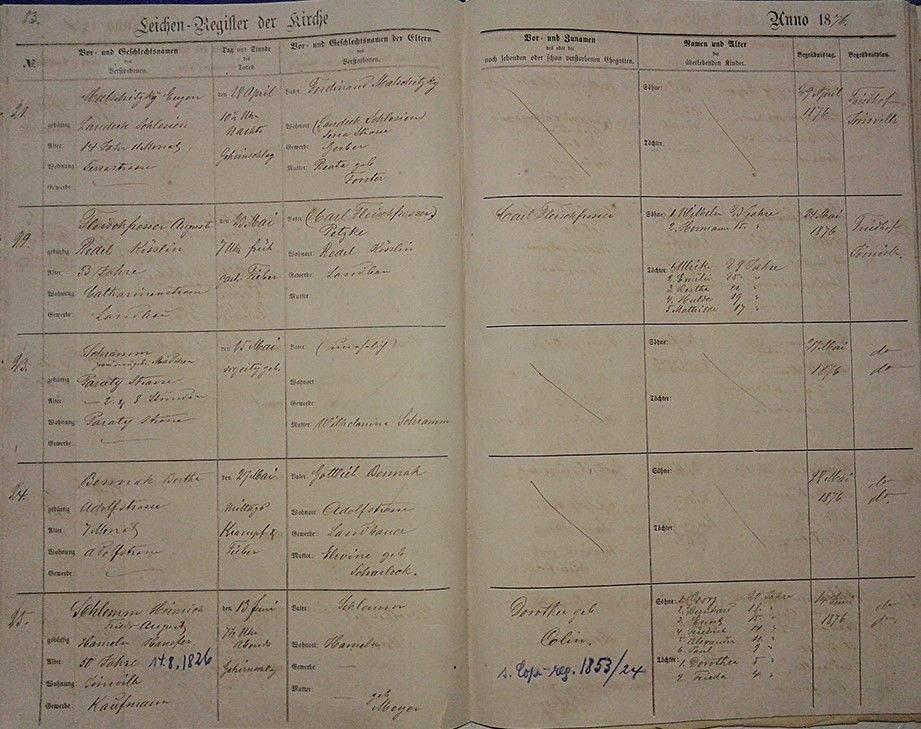 83.
Leichen-Register der Kirche
Anno 1876
№
Vor- und Geschlechtsnamen
des
Verstorbenen.
Tag und Stunde
des
Todes.
Vor- und Geschlechtsnamen der Eltern
des
Verstorbenen.
Vor- und Zunamen
des oder der
noch lebenden oder schon verstorbenen Ehegatten.
Namen und Alter
der
überlebenden Kinder.
Begräbnißtag.
Begräbnißplatz.
21.
Eugen
gebürtig Landeck Schlesien
Alter 14 Jahr 11 Monat
Wohnung:
Gewerbe:
den 18 April
10½ Uhr
Nachts
Gehirnschlag
Vater: Ferdinand
Wohnort: Landeck Schlesien
Gewerbe: Gerber
Mutter: Beata geb
Forster
Söhne:
Töchter:
19 April
1876
Friedhof
Joinville
22.
Fleischfresser August
gebürtig Redel Köslin
Alter: 53 Jahre
Wohnung: Catharinenstrasse
Gewerbe: Landbau
den 23 Mai
7 Uhr früh
gast. Fieber
Vater: Carl Fleischfresser
Wohnort: Redel Köslin
Gewerbe: Landbau
Mutter:
Carl Fleischfresser
Söhne: 1. Wilhelm 23 Jahre
2. Hermann
Töchter: 29 Jahre
2. Emilie 25 "
3. Bertha
4. Hulda 19 "
5. Mathilde 17 "
24 Mai
1876
Friedhof
Joinville
23.
Schramm
Mädchen
gebürtig Paraty Strasse
Alter 8 Stunden
Wohnung: Paraty Strasse
Gewerbe:
den 25 Mai
Vater: (unehelich)
Wohnort:
Gewerbe:
Mutter: Wilhelmine Schramm
Söhne:
Töchter:
27 Mai
1876
do
do
24.
Bertha
gebürtig Adolfstrasse
Alter 7 Monat
Wohnung Adolfstrasse
Gewerbe:
den 27 Mai
Mittags
Krampf &
Fieber
Vater: Gottlieb
Wohnort: Adolfstrasse
Gewerbe: Landbauer
Mutter: geb
Scharlock.
Söhne:
Töchter:
28 Mai
1876
do
do
25.
Schlemm Heinrich
Friedr August
gebürtig Hameln Hannover
Alter 50 Jahre 14.8.1826
Wohnung: Joinville
Gewerbe: Kaufmann
den 13 Juni
7½ Uhr
Abends
Gehirnschlag
Vater: Schlemm
Wohnort: Hameln
Gewerbe:
Mutter geb
Meyer
Dorothea geb
Colin.
s. Cop.-reg. 1853/24
Söhne: 1. Georg 20 Jahre
2. Bernhard 18 "
3. Ernst 15 "
4. Friedrich
5. Alexander
6. Paul 9 "
Töchter: 1. Dorothea
2. Frieda 4 "
14 Juni
1876
do
do